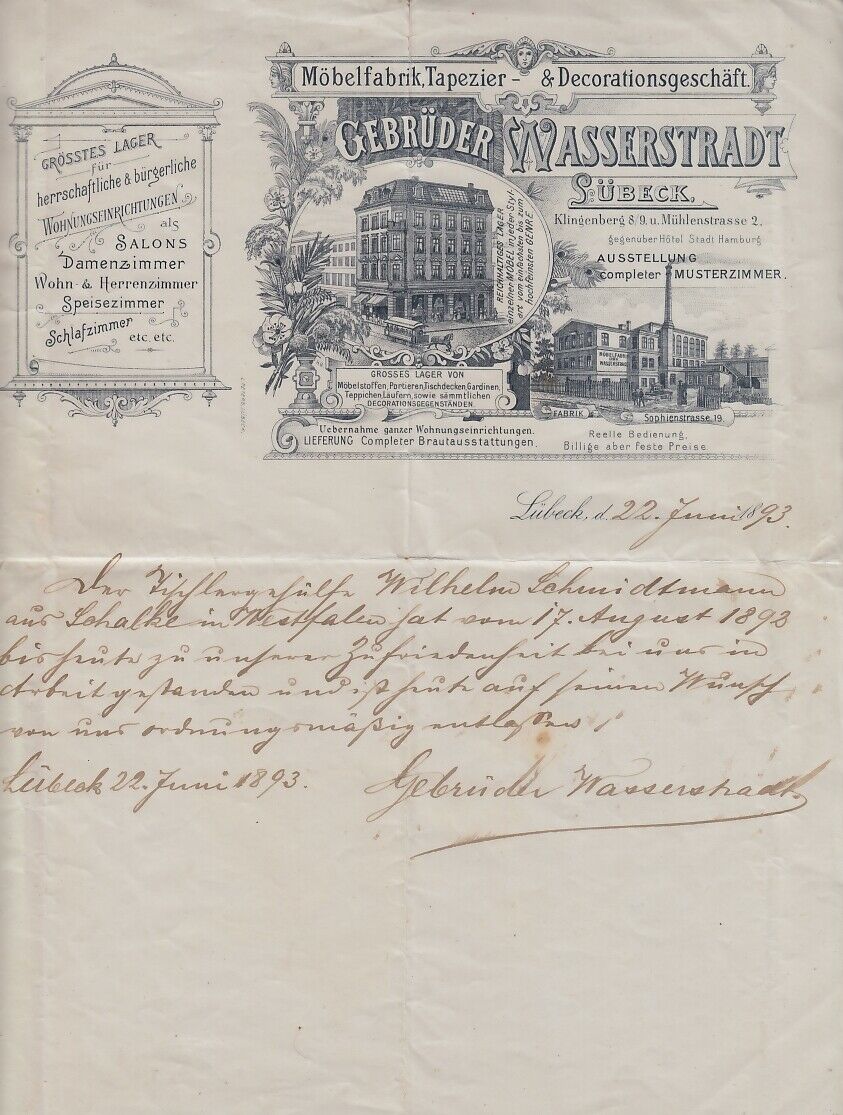 GRÖSSTES LAGER
für
herrschaftliche & bürgerliche
WOHNUNGSEINRICHTUNGEN
als
SALONS
Damenzimmer
Wohn- & Herrenzimmer
Speisezimmer
Schlafzimmer
etc. etc.
Möbelfabrik, Tapezier- & Decorationsgeschäft.
GEBRÜDER WASSERSTRADT
LÜBECK.
Klingenberg 8/9. u. Mühlenstrasse 2.
gegenüber Hôtel Stadt Hamburg
AUSSTELLUNG
completer MUSTERZIMMER.
REICHHALTIGES LAGER
einzelner MÖBEL in jeder Styl-
art vom einfachsten bis zum
hochfeinsten GENRE
GROSSES LAGER VON
Möbelstoffen, Portièren, Tischdecken, Gardinen,
Teppichen, Läufern, sowie sämmtlichen
DECORATIONSGEGENSTÄNDEN.
MÖBELFABRIK
GEBR.
WASSERSTRADT
FABRIK
Sophienstrasse 19.
Uebernahme ganzer Wohnungseinrichtungen.
LIEFERUNG Completer Brautausstattungen.
Reelle Bedienung.
Billige aber feste Preise.
Lübeck, d. 22. Juni 1893.
Der Tischlergehülfe Wilhelm Schmidtmann
aus Schalke in Westfalen hat vom 17. August 1892
bis heute zu unserer Zufriedenheit bei uns in
Arbeit gestanden und ist heute auf seinen Wunsch
von uns ordnungsmäßig entlassen
Lübeck 22. Juni 1893.
Gebrüder Wasserstradt